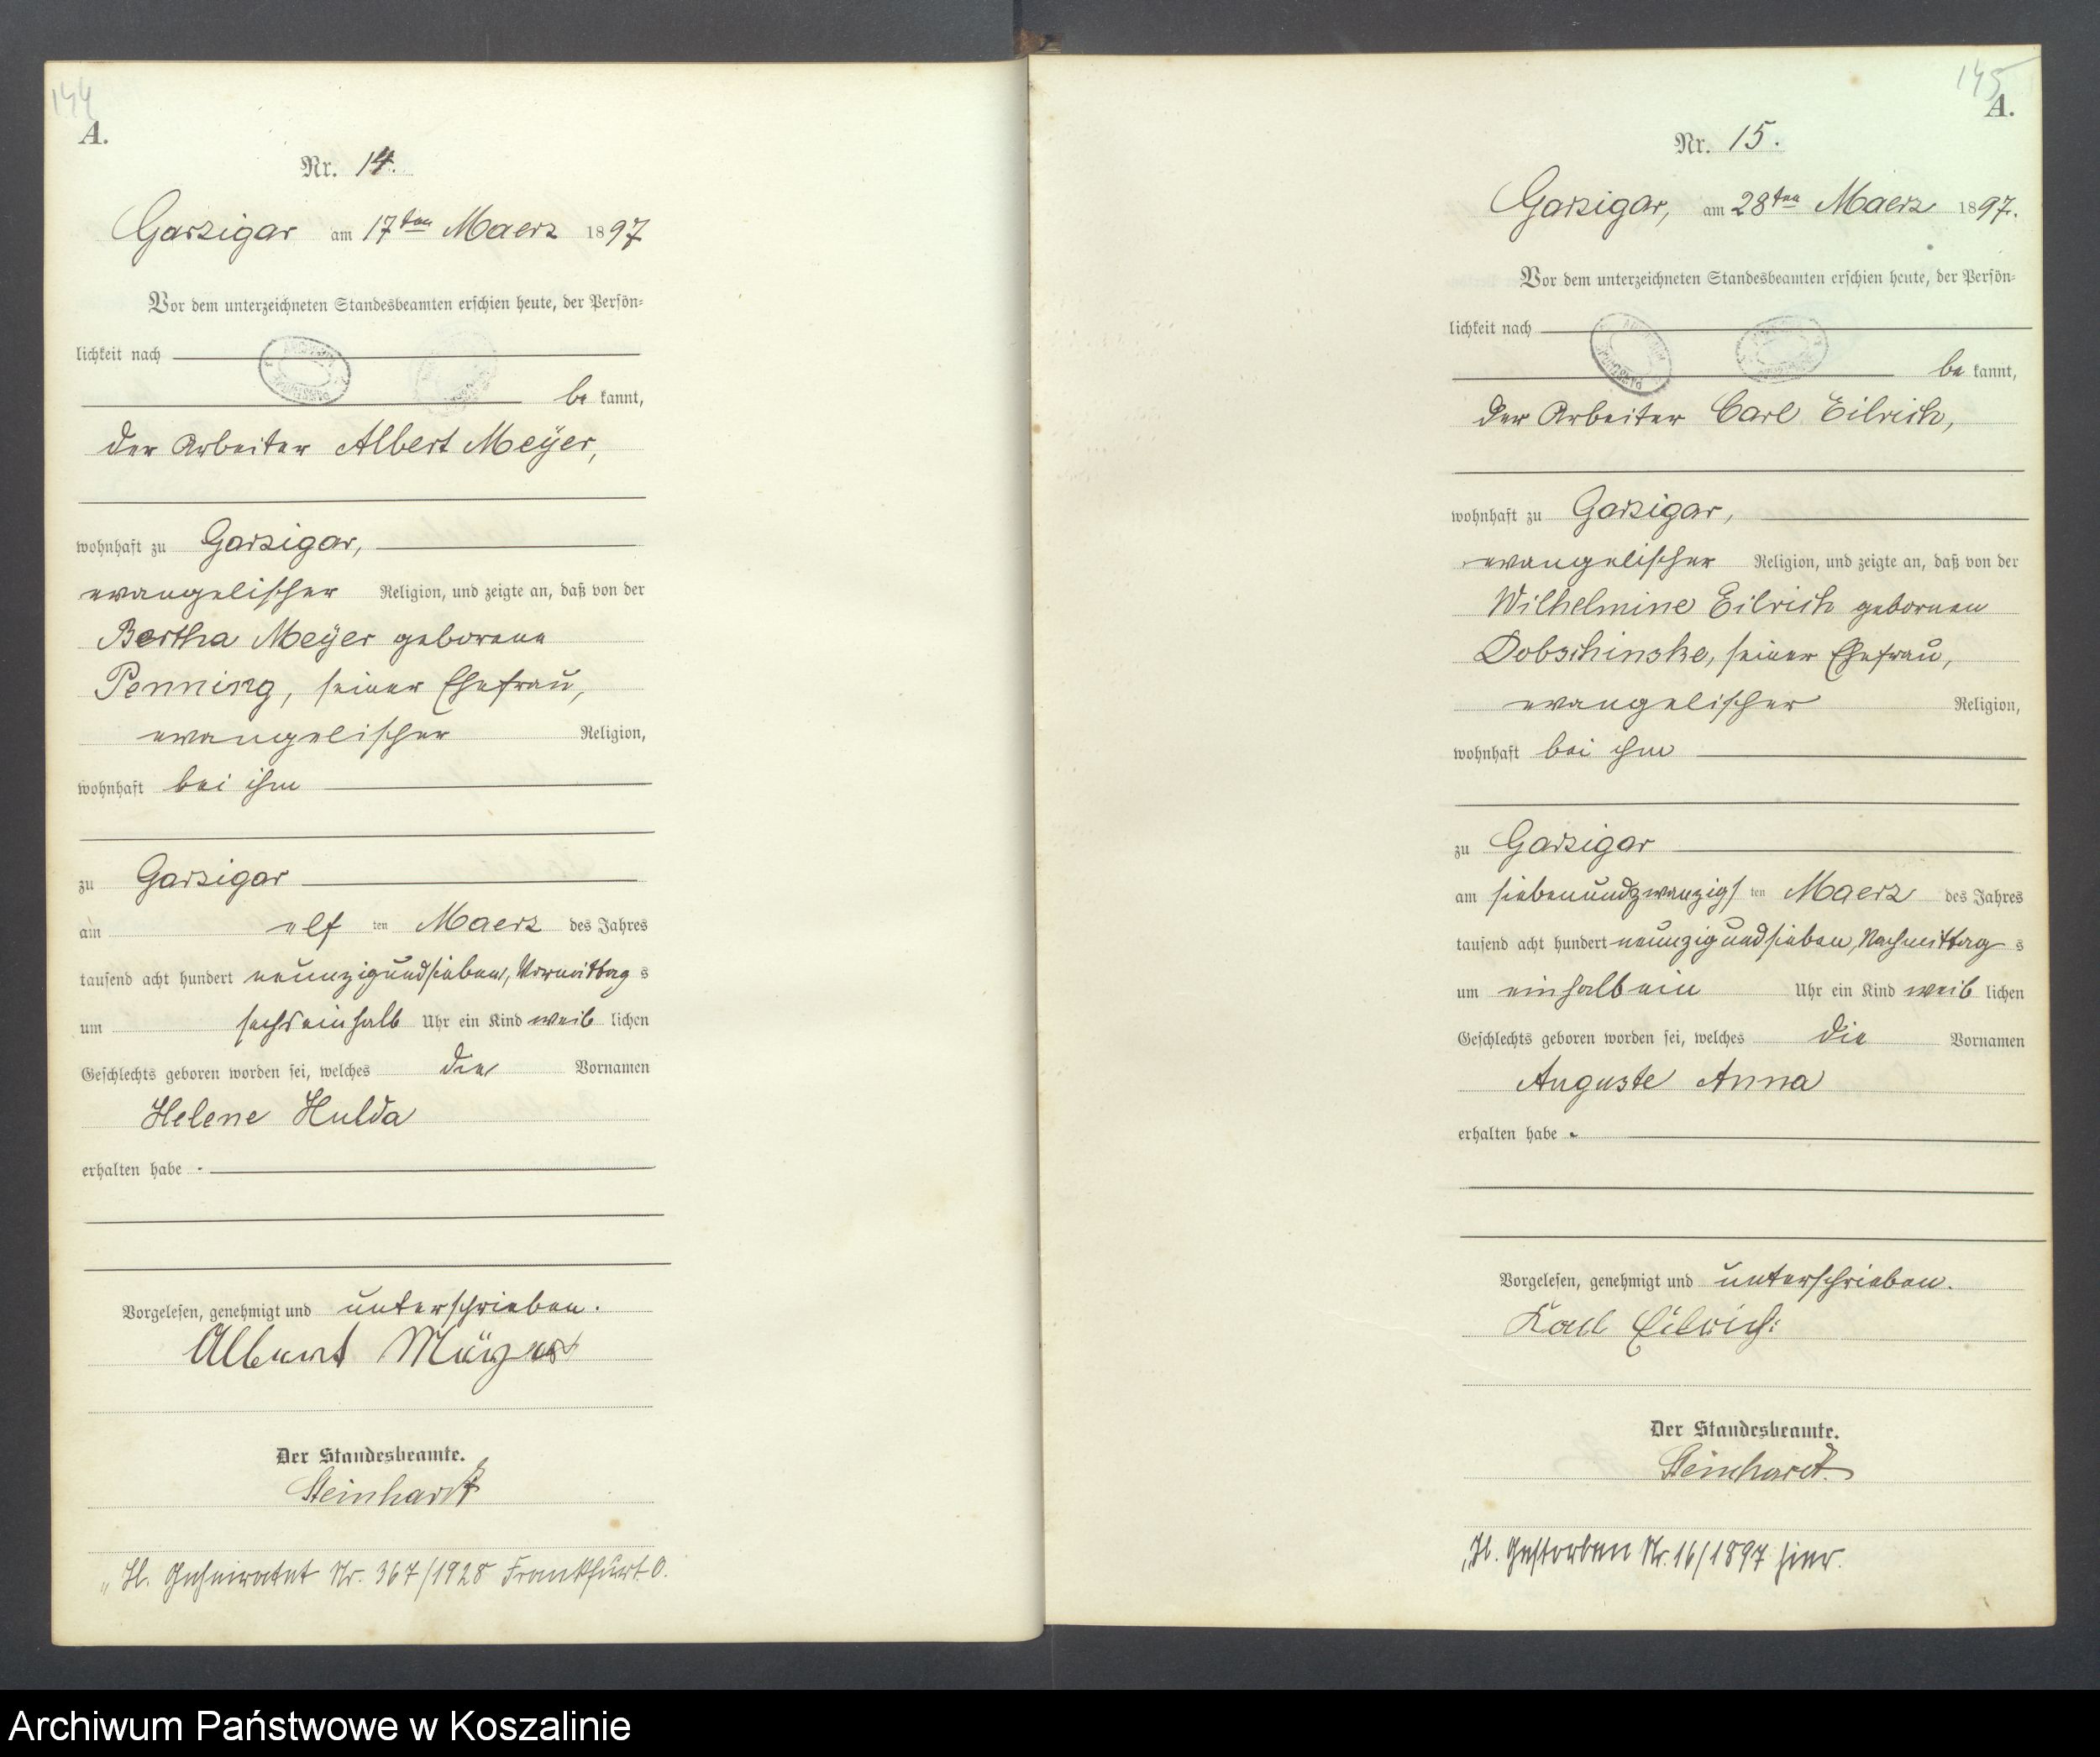 144
A.
Nr. 14.
Garzigar am 17ten Maerz 1897
Vor dem unterzeichneten Standesbeamten erschien heute, der Persön-
lichkeit nach
be kannt,
der Arbeiter Albert Meÿer,
wohnhaft zu Garzigar,
evangelischer Religion, und zeigte an, daß von der
Bertha Meÿer geborene
Penning, seiner Ehefrau,
evangelischer Religion,
wohnhaft bei ihm
zu Garzigar
am elf ten Maerz des Jahres
tausend acht hundert neunzigundsieben, Vormittag s
um sechseinhalb Uhr ein Kind weib lichen
Geschlechts geboren worden sei, welches die Vornamen
Helene Hulda
erhalten habe.
Vorgelesen, genehmigt und unterschrieben.
Albert
Der Standesbeamte.
Steinhardt
H. Geheiratet Nr. 367/1928 Frankfurt O.
145
A.
Nr. 15.
Garzigar, am 28ten Maerz 1897.
Vor dem unterzeichneten Standesbeamten erschien heute, der Persön-
lichkeit nach
be kannt,
der Arbeiter Carl Eilrich,
wohnhaft zu Garzigar,
evangelischer Religion, und zeigte an, daß von der
Wilhelmine Eilrich gebornen
Dobschinske, seiner Ehefrau,
evangelischer Religion,
wohnhaft bei ihm
zu Garzigar
am siebenundzwanzigs ten Maerz des Jahres
tausend acht hundert neunzigundsieben, Nachmittag s
um einhalbein Uhr ein Kind weib lichen
Geschlechts geboren worden sei, welches die Vornamen
Auguste Anna
erhalten habe.
Vorgelesen, genehmigt und unterschrieben.
Karl Eilrich.
Der Standesbeamte.
Steinhardt.
H. Gestorben Nr. 16/1897 hier.
Archiwum Państwowe w Koszalinie